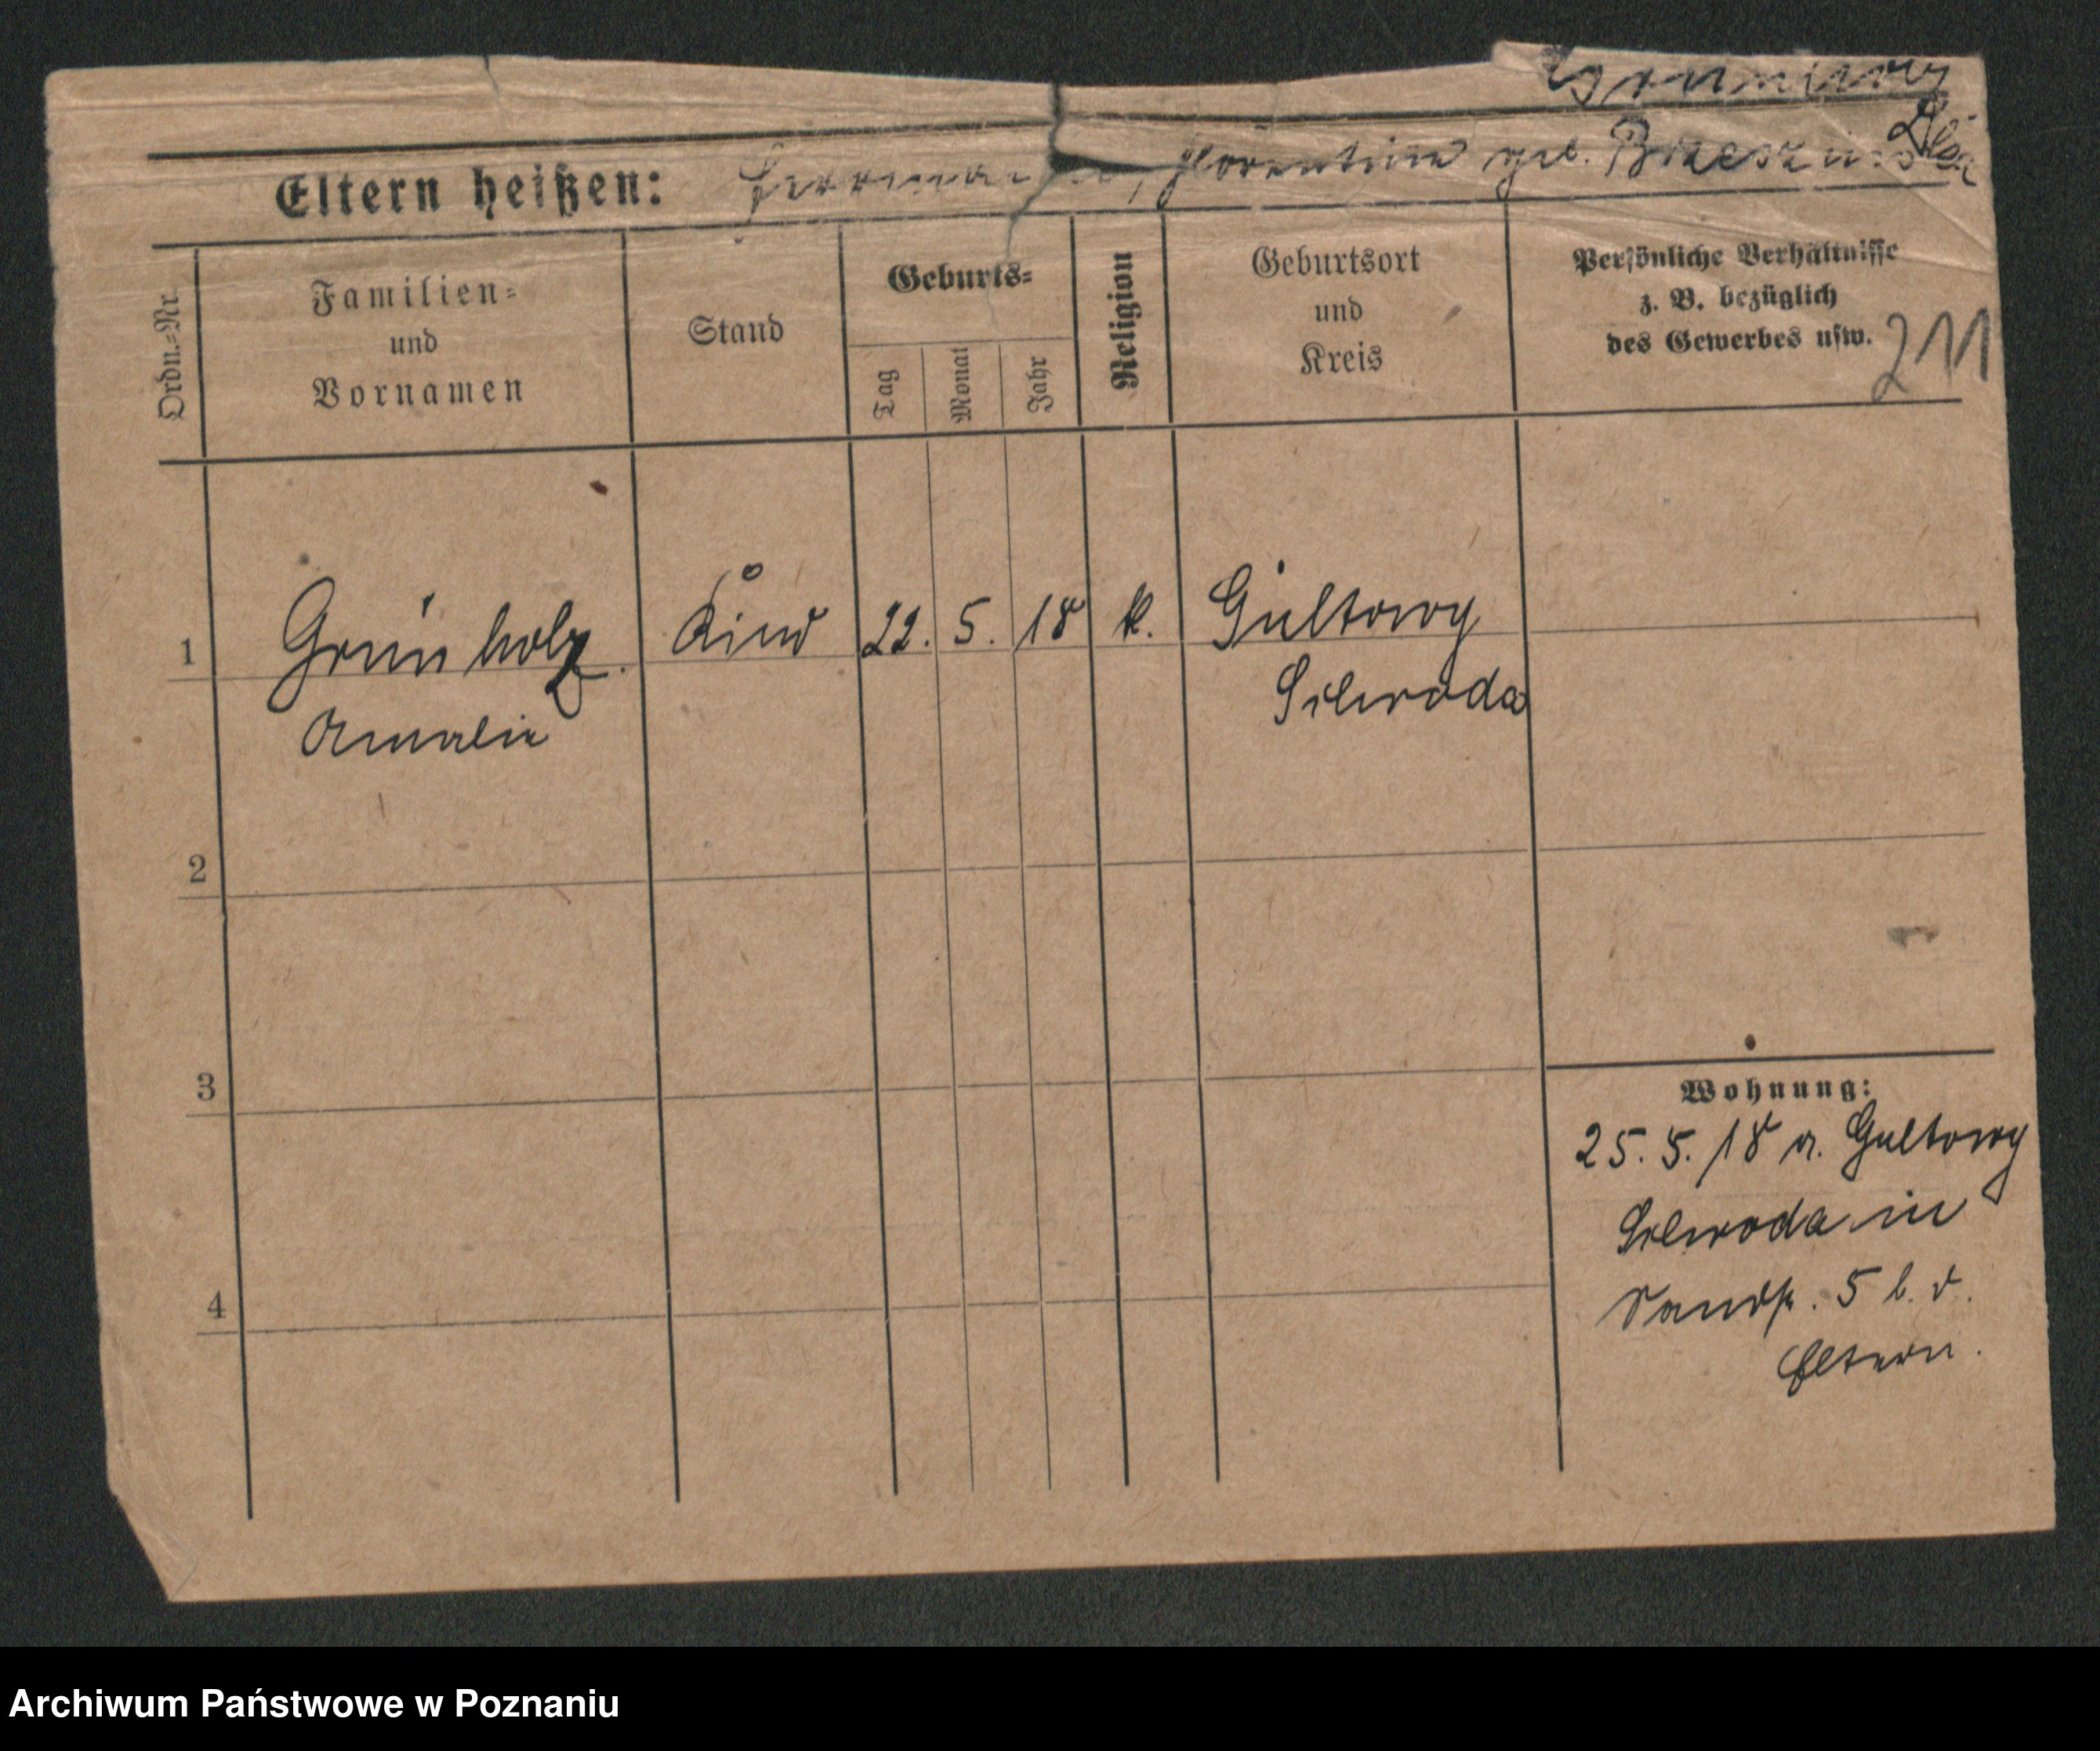 Eltern heißen: Hermann, Florentine geb.
Ordn.=Nr.
Familien=
und
Vornamen
Stand
Geburts=
Tag
Monat
Jahr
Religion
Geburtsort
und
Kreis
Persönliche Verhältnisse
z. B. bezüglich
des Gewerbes usw.
211
1 Grünholz Kind 22. 5. 18 k. Gultowy
Schroda
Amalie
2
3
4
Wohnung:
25. 5. 18 a. Gultowy
Schroda in
5 b. d.
Eltern.
Archiwum Państwowe w Poznaniu